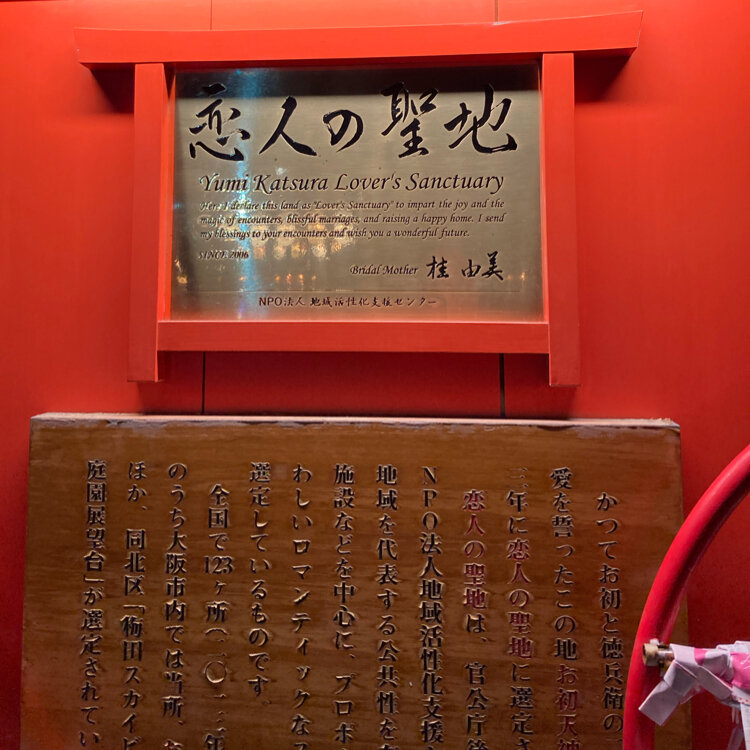 恋人の聖地
Yumi Katsura Lover's Sanctuary
Here I declare this land as "Lover's Sanctuary" to impart the joy and the
magic of encounters, blissful marriages, and raising a happy home. I send
my blessings to your encounters and wish you a wonderful future.
SINCE 2006
Bridal Mother 桂 由美
NPO法人 地域活性化支援センター
かつてお初と徳兵衛の
愛を誓ったこの地お初天
年に恋人の聖地に選定さ
恋人の聖地は、官公庁
NPO法人地域活性化支援
地域を代表する公共性を
施設などを中心に、プロポ
わしいロマンティックなス
選定しているものです。
全国で123ヶ所(二〇一二年
のうち大阪市内では当所、
ほか、同北区「梅田スカイビ
庭園展望台」が選定されてい